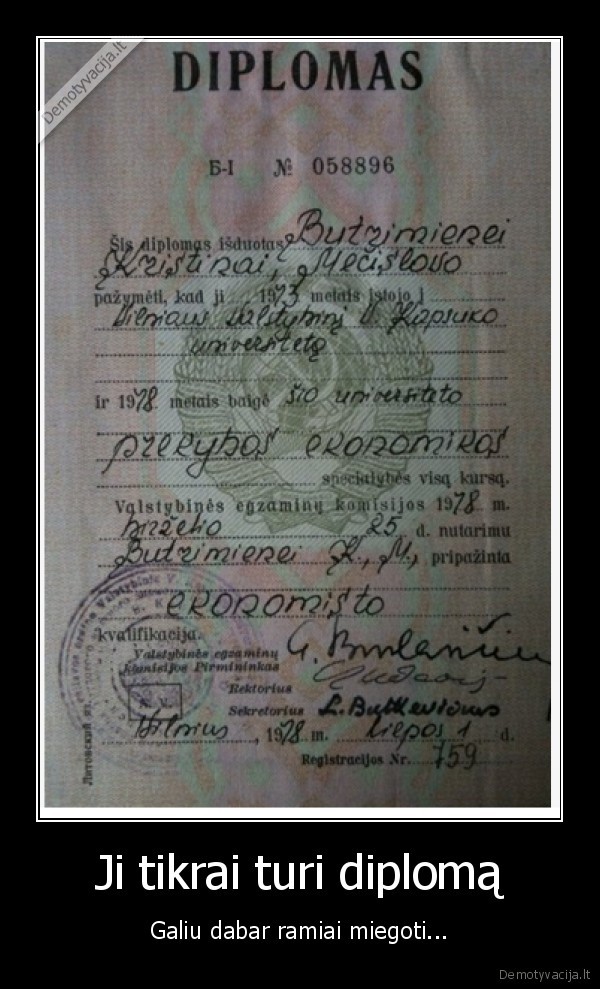 Demotyvacija.lt
DIPLOMAS
Б-I № 058896
Šis diplomas išduotas Butrimienei
Kristinai, Mečislovo
pažymėti, kad ji 1973 metais įstojo į
Vilniaus valstybinį V. Kapsuko
universitetą
ir 1978 metais baigė šio universiteto
prekybos ekonomikos
specialybės visą kursą.
Valstybinės egzaminų komisijos 1978 m.
birželio 25 d. nutarimu
Butrimienei K., M., pripažinta
ekonomisto
kvalifikacija.
Valstybinės egzaminų
komisijos Pirmininkas
Rektorius
Sekretorius L. Butkevičius
A. V.
Vilnius, 1978 m. liepos 1 d.
Registracijos Nr. 759
Литовский яз.
Ji tikrai turi diplomą
Galiu dabar ramiai miegoti...
Demotyvacija.lt